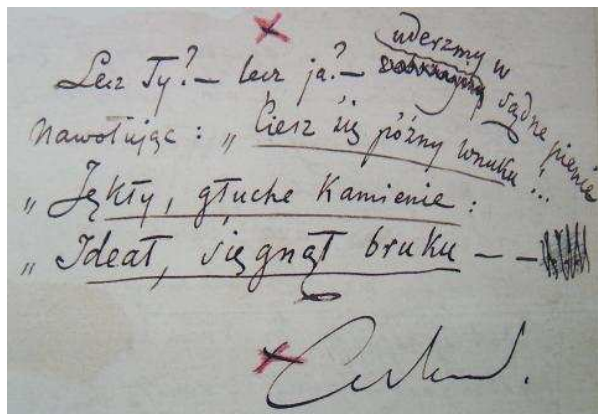 Lecz Ty? – lecz ja? – uderzmy w sądne pienie
Nawołując: „Ciesz się późny wnuku!..
„Jękły, głuche Kamienie:
„Ideał, sięgnął bruku – –